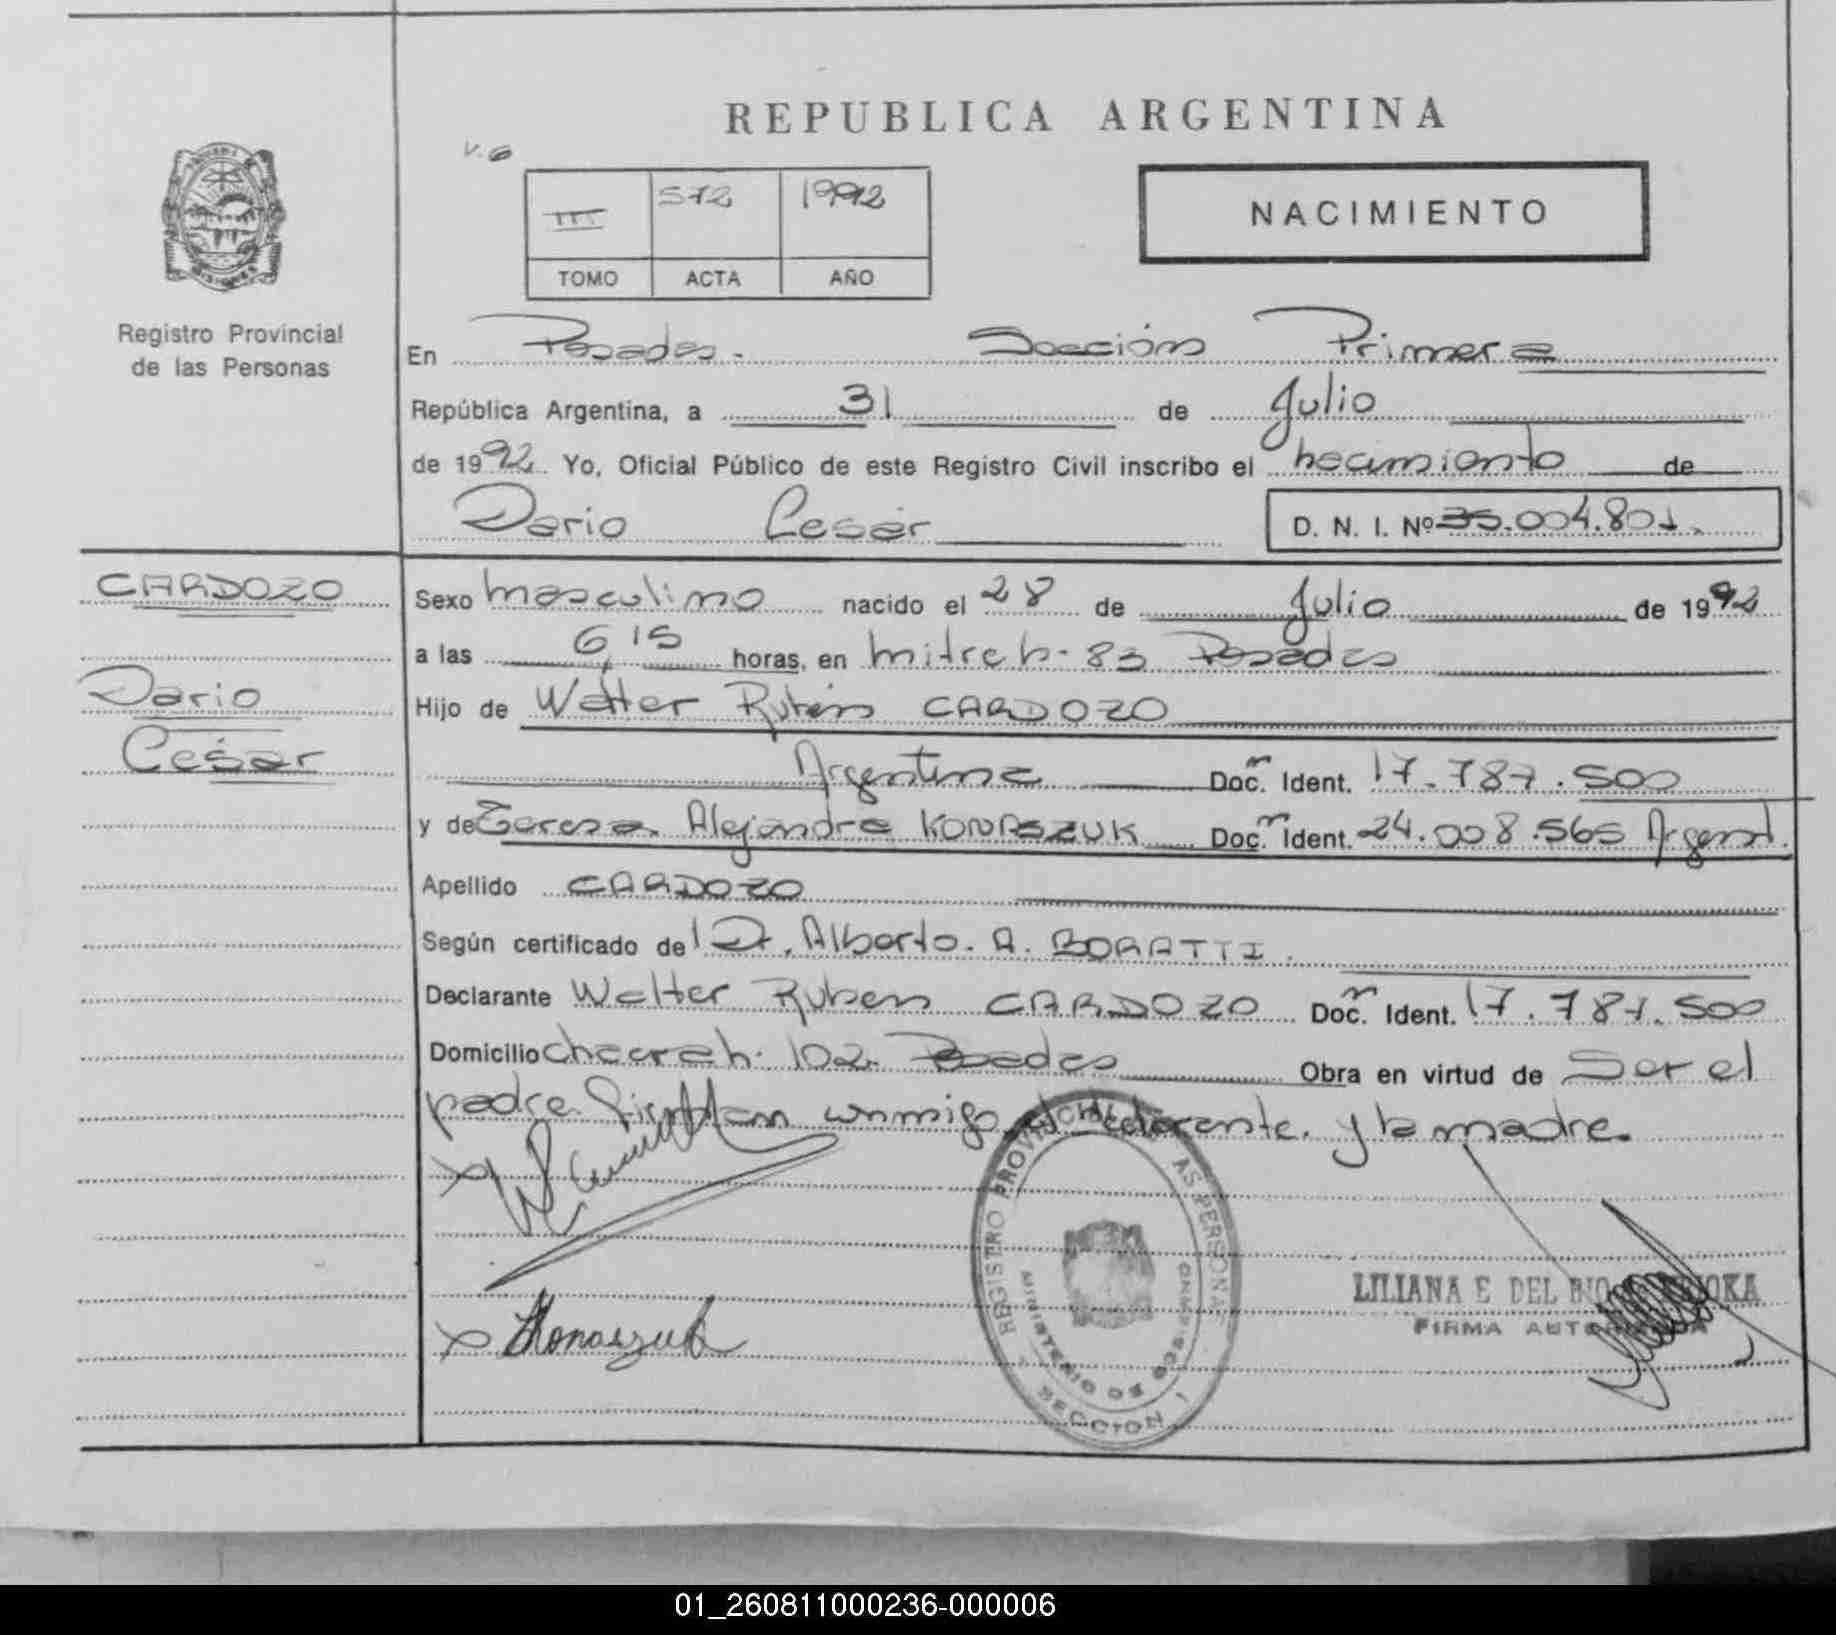 REPUBLICA ARGENTINA
V. 6
III 572 1992
TOMO ACTA AÑO
NACIMIENTO
Registro Provincial
de las Personas
En Posadas. Sección Primera
República Argentina, a 31 de Julio
de 1992 Yo, Oficial Público de este Registro Civil inscribo el nacimiento de
Dario Cesar D. N. I. Nº 35.004.801.
CARDOZO
Dario
Cesar
Sexo masculino nacido el 28 de Julio de 1992
a las 6,15 horas, en mitre h. 83 Posadas
Hijo de Walter Rubén CARDOZO
Argentina Doc. Ident. 17.787.500
y de Teresa Alejandra KONASZUK Doc. Ident. 24.008.565 Argent.
Apellido CARDOZO
Según certificado del Dr. Alberto. A. BORATTI.
Declarante Walter Ruben CARDOZO Doc. Ident. 17.787.500
Domicilio chacra h. 102. Posadas Obra en virtud de Ser el
padre. Firman conmigo el declarante. y la madre.
REGISTRO PROVINCIAL DE LAS PERSONAS
MINISTERIO DE GOBIERNO
SECCION 1
Konaszuk
LILIANA E DEL RIO
FIRMA AUTORIZADA
01_260811000236-000006